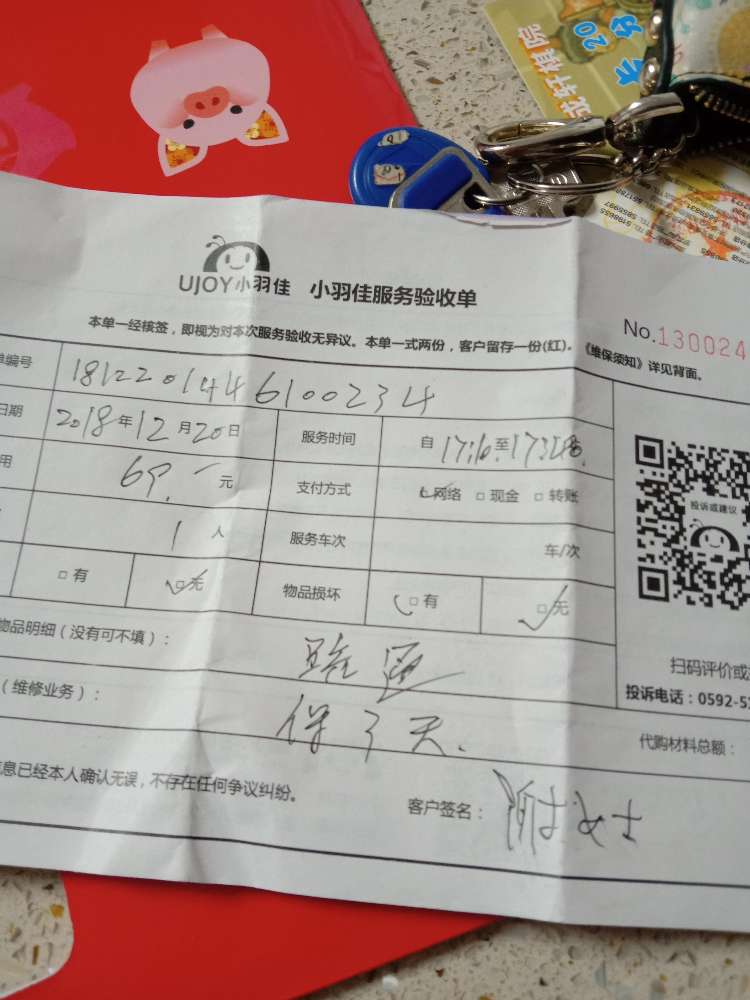 UJOY小羽佳 小羽佳服务验收单
本单一经核签，即视为对本次服务验收无异议。本单一式两份，客户留存一份(红)。《维保须知》详见背面。
No.130024
单编号 1812201446100234
日期 2018年12月20日 服务时间 自17:10至
用 69.一元 支付方式 ☑网络 □现金 □转账
1人 服务车次 车/次
□有 ☑无 物品损坏 □有 ☑无
投诉或建议
物品明细（没有可不填）：
（维修业务）： 保了天.
扫码评价或
投诉电话：0592-52
代购材料总额：
息已经本人确认无误，不存在任何争议纠纷。
客户签名： 女士